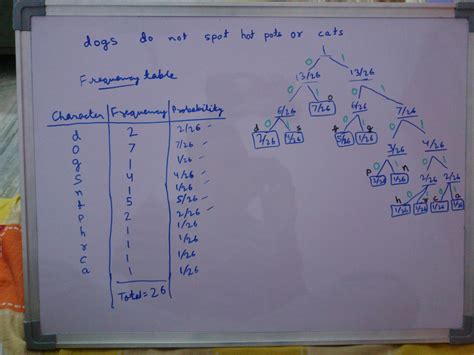 dogs do not spot hot pots or cats
Frequency table
Character Frequency Probability
d 2 2/26
o 7 7/26
g 1 1/26
s 4 4/26
n 1 1/26
t 5 5/26
p 2 2/26
h 1 1/26
r 1 1/26
c 1 1/26
a 1 1/26
Total = 26
1
0 1
13/26 13/26
0 1 0 1
6/26 7/26 o 6/26 7/26
0 1 0 1 0 1
d 2/26 s 4/26 t 5/26 g 1/26 3/26 4/26
0 1 0 1
p 2/26 n 1/26 2/26 2/26
0 1 0 1
h 1/26 r 1/26 c 1/26 a 1/26